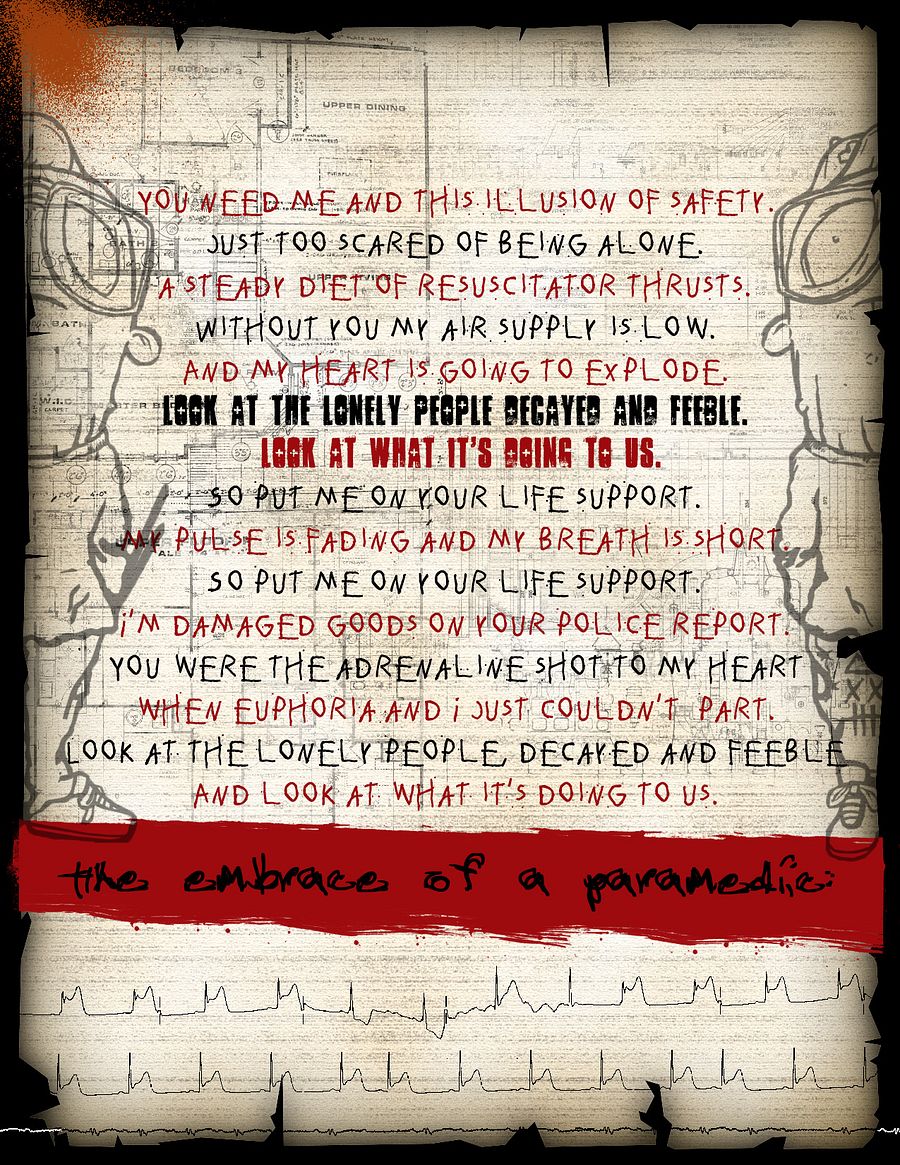 BEDROOM 3
UPPER DINING
YOU NEED ME AND THIS ILLUSION OF SAFETY.
JUST TOO SCARED OF BEING ALONE.
A STEADY DIET OF RESUSCITATOR THRUSTS.
WITHOUT YOU MY AIR SUPPLY IS LOW.
AND MY HEART IS GOING TO EXPLODE.
LOOK AT THE LONELY PEOPLE DECAYED AND FEEBLE.
LOOK AT WHAT IT'S DOING TO US.
SO PUT ME ON YOUR LIFE SUPPORT.
MY PULSE IS FADING AND MY BREATH IS SHORT.
SO PUT ME ON YOUR LIFE SUPPORT.
i'M DAMAGED GOODS ON YOUR POLICE REPORT.
YOU WERE THE ADRENALINE SHOT TO MY HEART
WHEN EUPHORIA AND i JUST COULDN'T PART.
LOOK AT THE LONELY PEOPLE, DECAYED AND FEEBLE
AND LOOK AT WHAT IT'S DOING TO US.
the embrace of a paramedic:
BATH
W.I.C.
CARPET